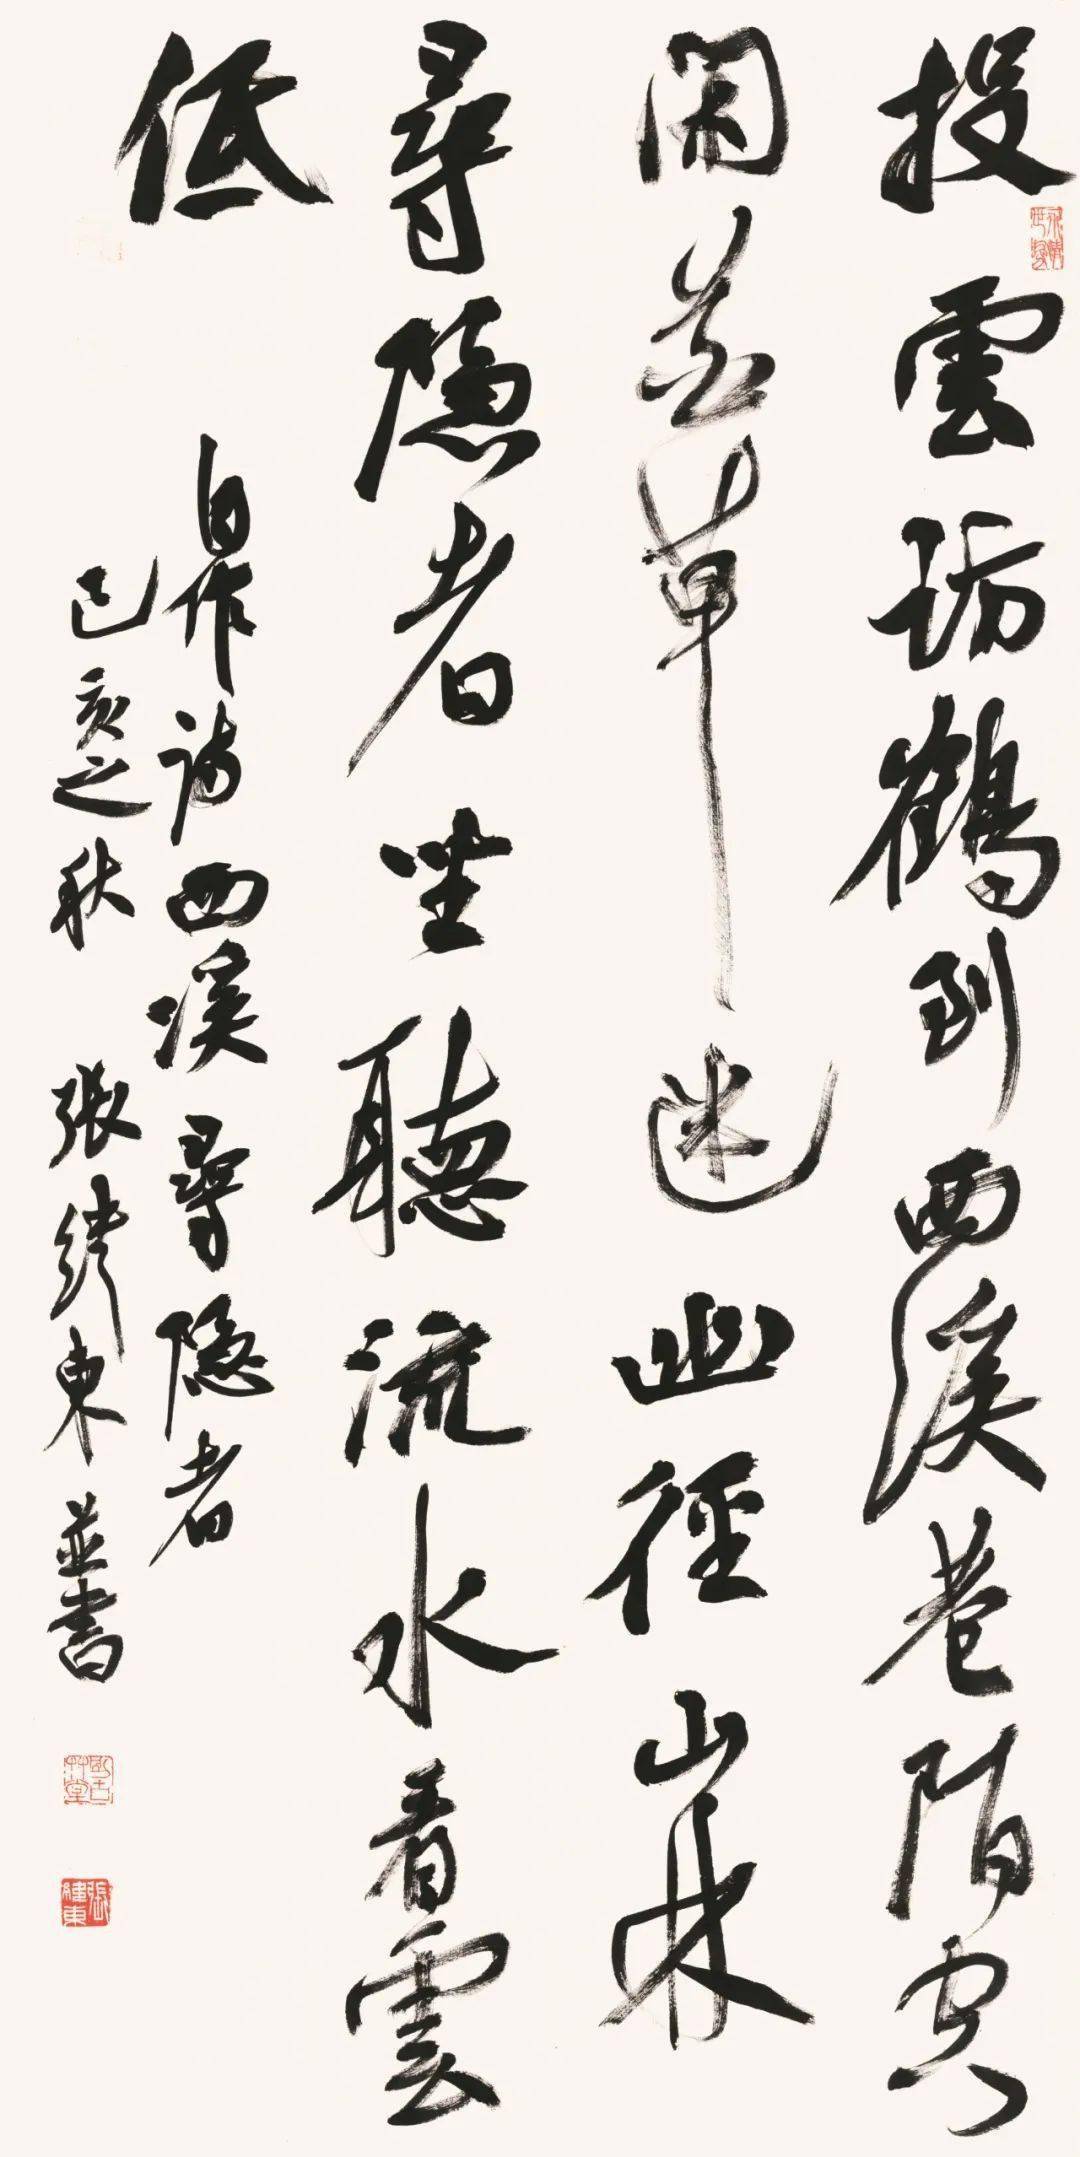 投雲訪鶴到西溪巷陌空
閑草迷幽徑山林
尋隱者坐聽流水看雲
低
自作詩西溪尋隱者
己亥之秋 張緯東並書
張緯東